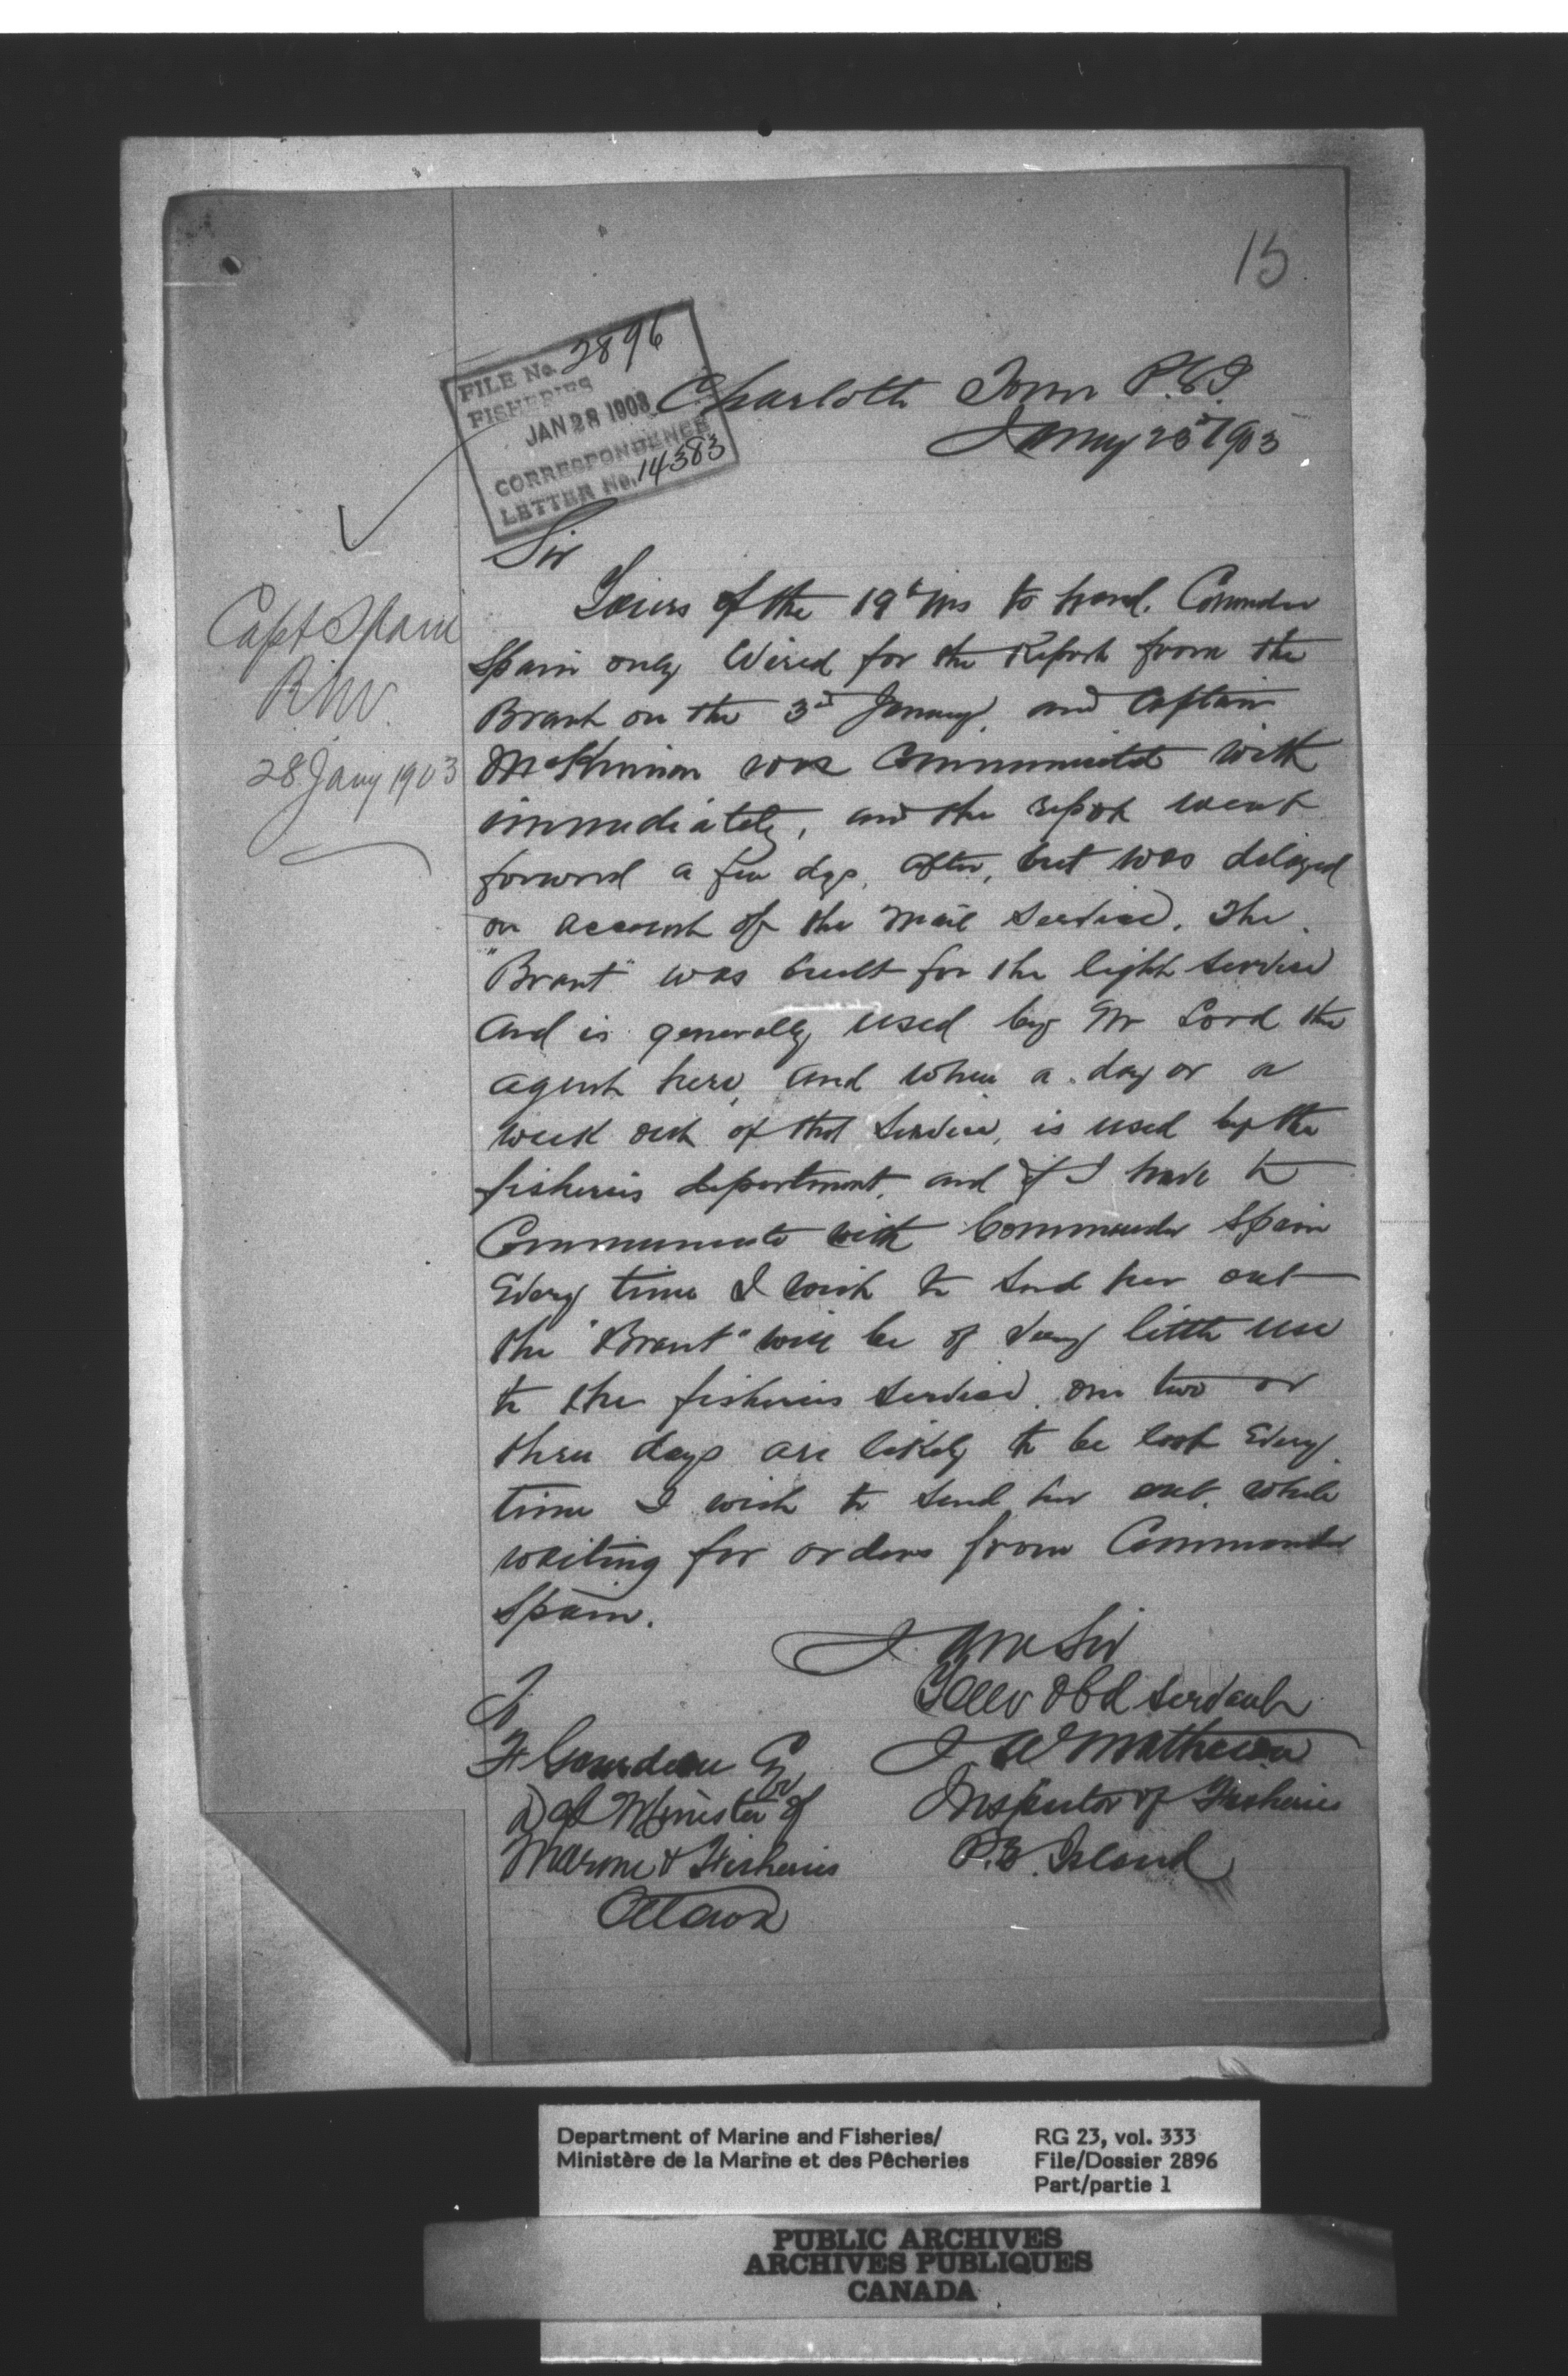 15
FILE No. 2896
FISHERIES
JAN 28 1903
CORRESPONDENCE
LETTER No. 14383
Charlotte Town P.E.I.
Jany 23rd 1903
Capt Spain
28 Jany 1903
Sir
Yours of the 19th ins to hand. Commder
Spain only Wired for the Report from the
Brant on the 3rd January, and Captain
McKinnon was Communicated with
immediately, and the report went
forward a few dys, after, but was delayed
on account of the Mail Service. The
"Brant" was built for the light service
and is generally used by Mr Lord the
agent here, and when a day or a
week out of that Service, is used by the
fisheries department, and if I have to
Communicate with Commander Spain
Every time I wish to send her out
the "Brant" will be of very little use
to the fisheries service. one two or
three days are likely to be lost Every
time I wish to send her out, while
waiting for orders from Commander
Spain.
I am Sir
Your Obd servant
J W Matheson
Inspector of Fisheries
P.E. Island
To
F Gourdeau Esq
Dept Minister of
Marine & Fisheries
Ottawa
Department of Marine and Fisheries/
Ministère de la Marine et des Pêcheries
RG 23, vol. 333
File/Dossier 2896
Part/partie 1
PUBLIC ARCHIVES
ARCHIVES PUBLIQUES
CANADA